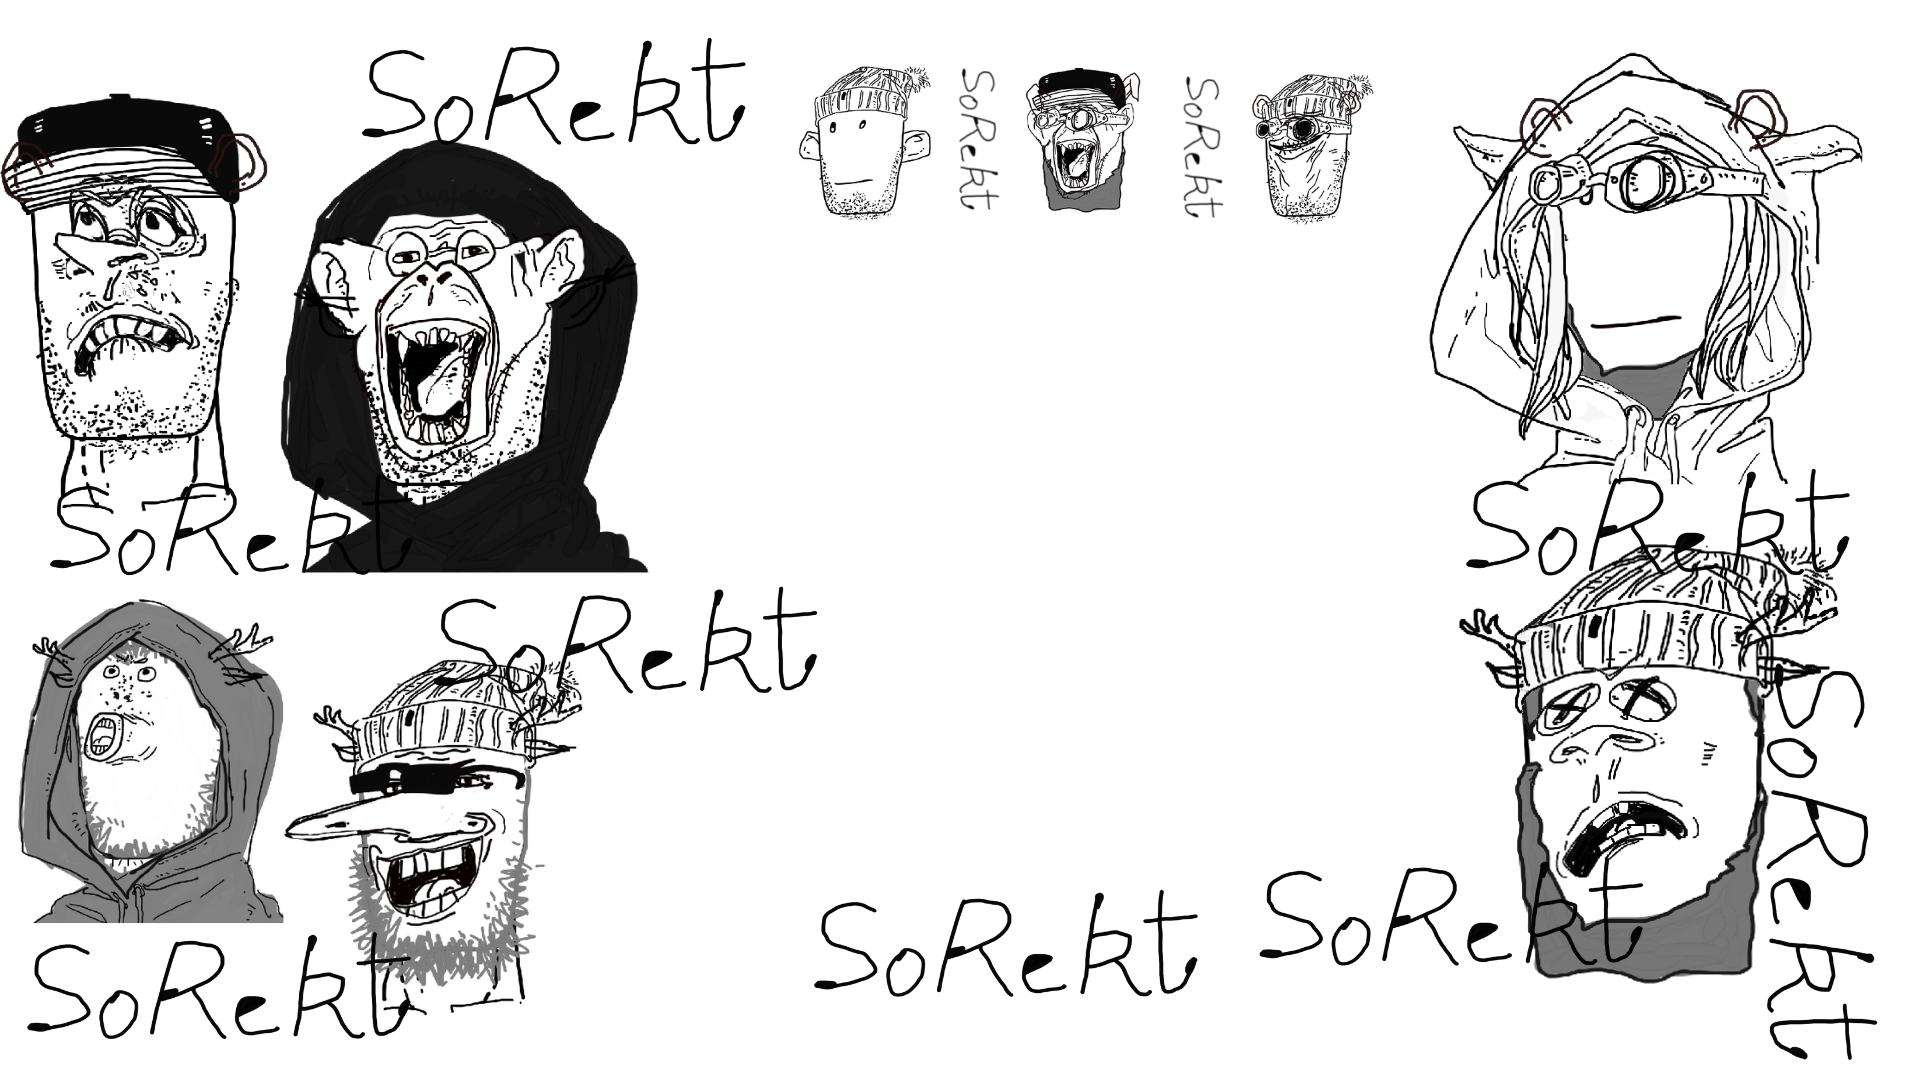 SoRekt
SoRekt
SoRekt
SoRekt
SoRekt
SoRekt
SoRekt
SoRekt
SoRekt
SoRekt